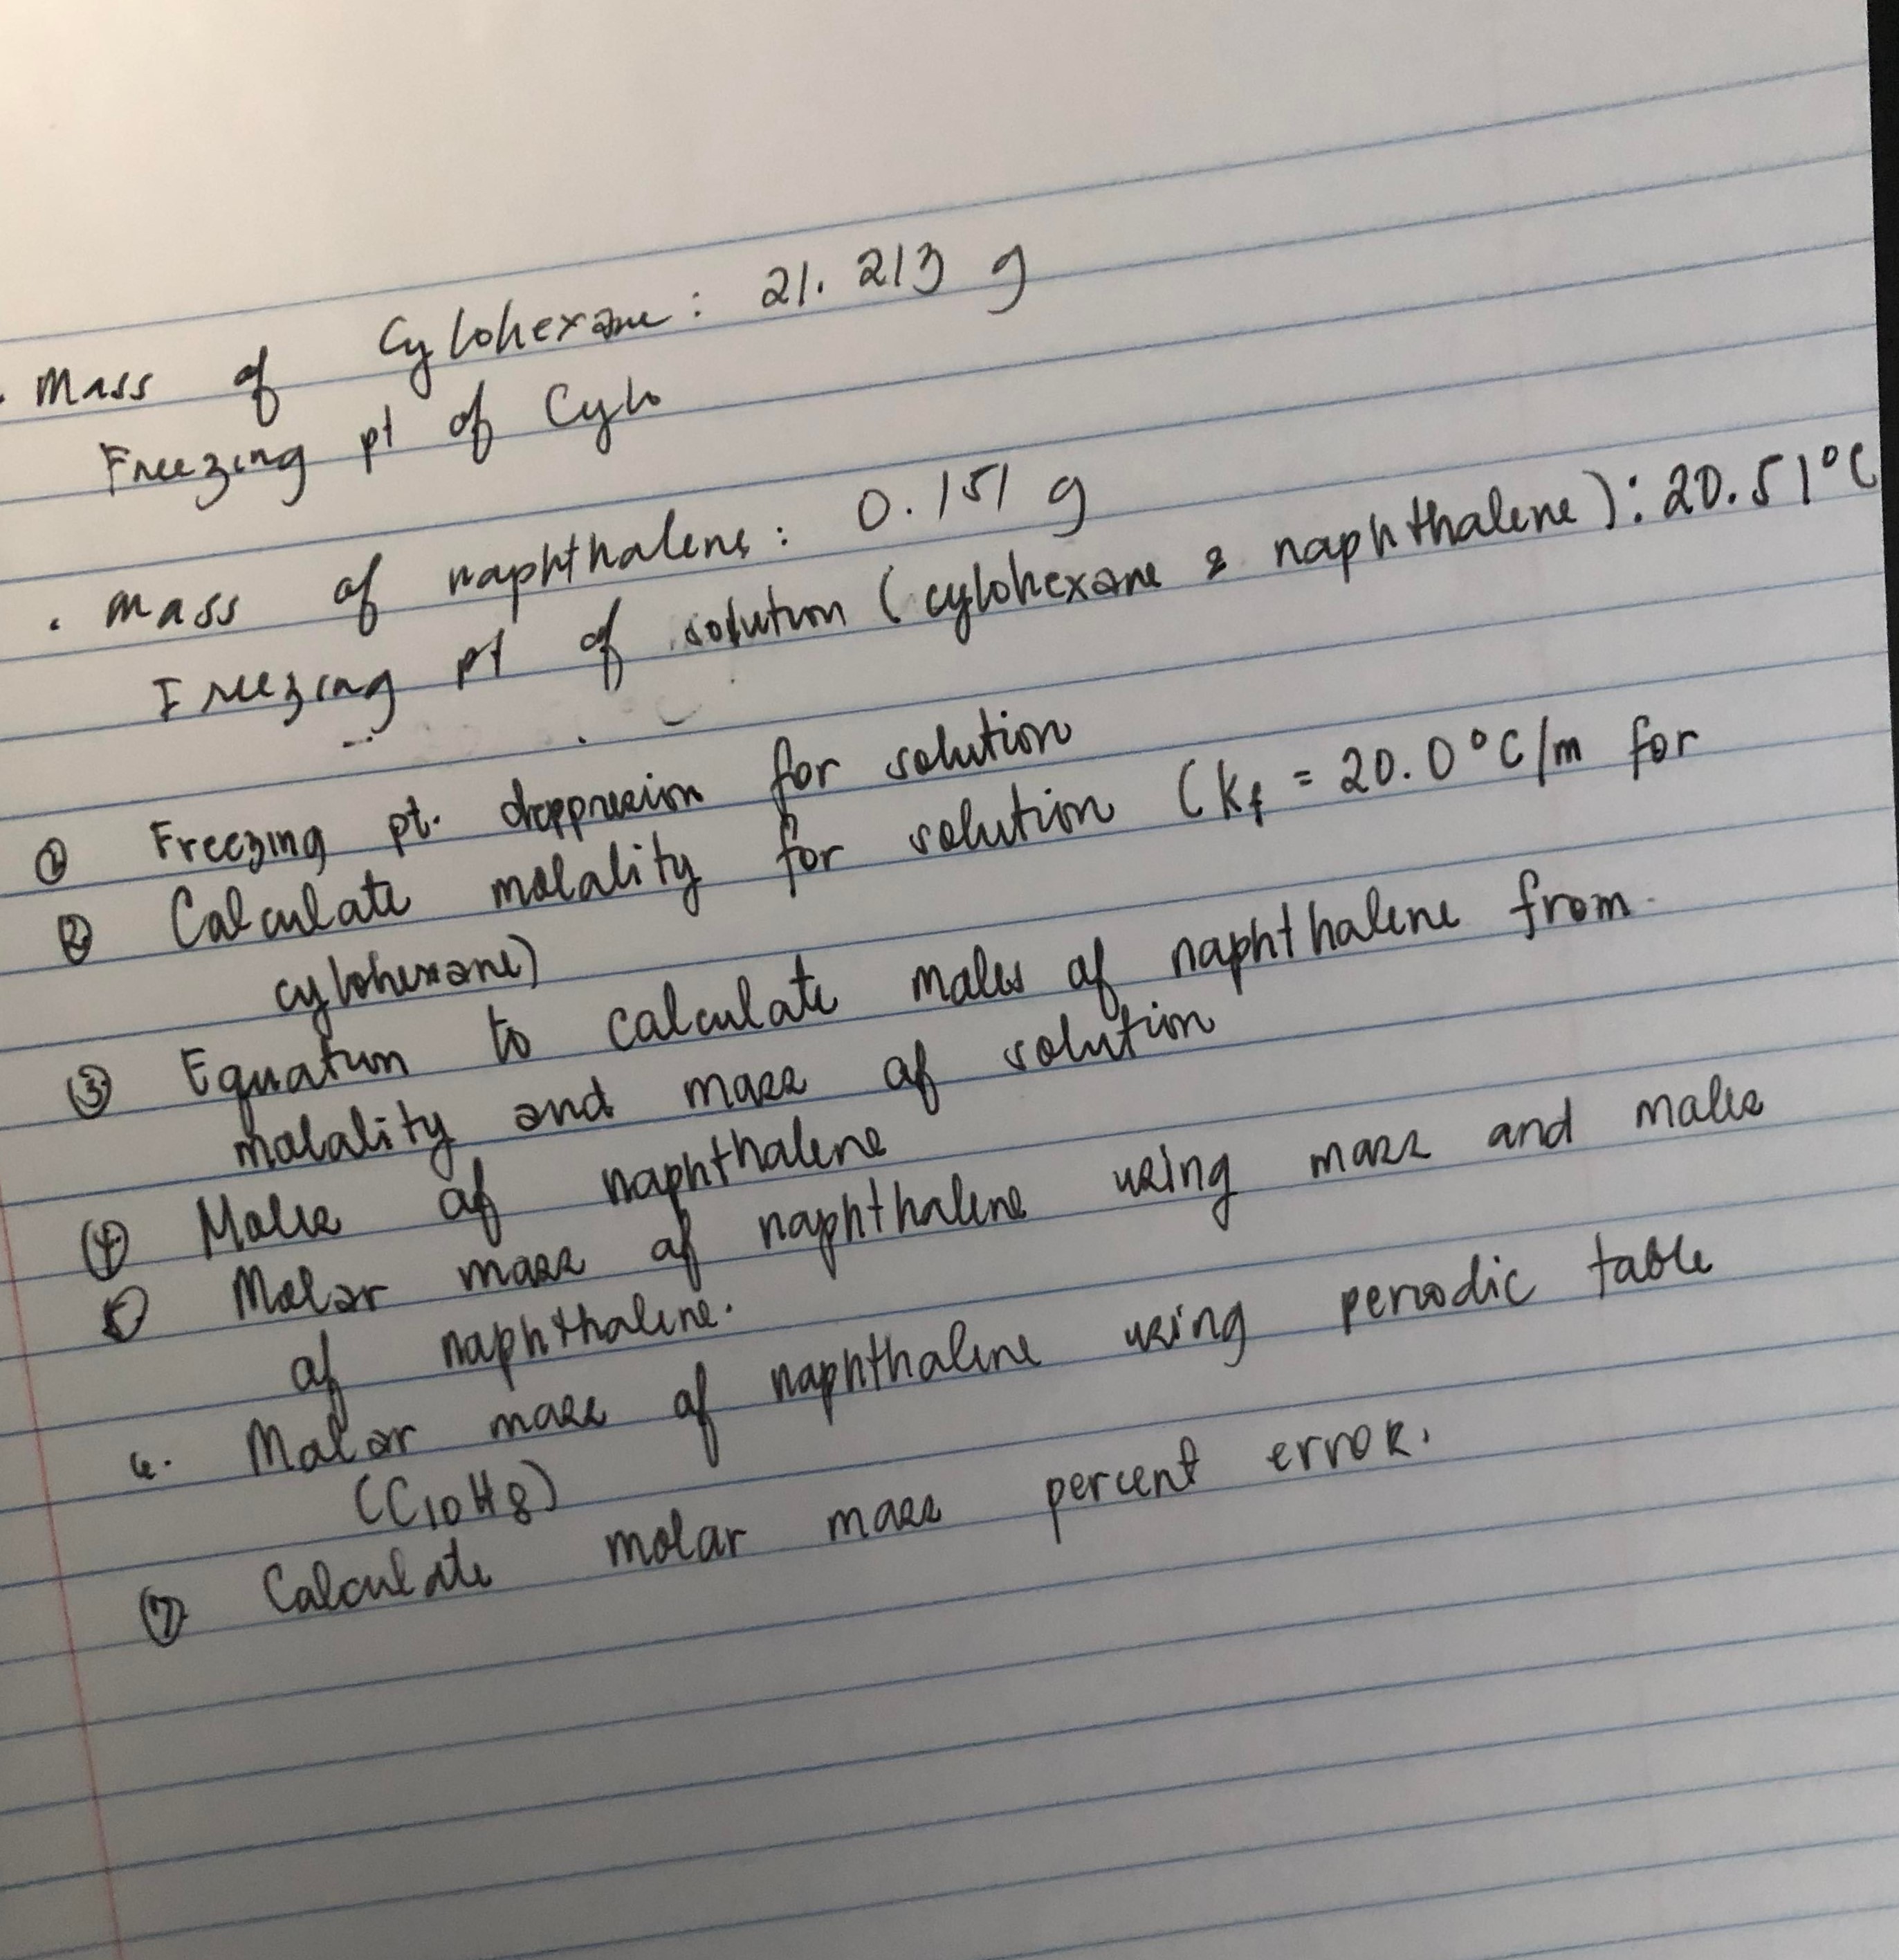 . Mass of Cylohexane: 21.213 g
Freezing pt of Cylo
. mass of naphthalene: 0.151 g
Freezing pt of solution (cylohexane & naphthalene): 20.51°C
① Freezing pt. deppression for solution
② Calculate molality for solution (kf = 20.0°C/m for
cylohexane)
③ Equation to calculate moles of naphthalene from
molality and mass of solution
④ Moles of naphthalene
⑤ Molar mass of naphthalene using mass and moles
of naphthalene.
6. Molar mass of naphthalene using periodic table
(C10H8)
⑦ Calculate molar mass percent error.